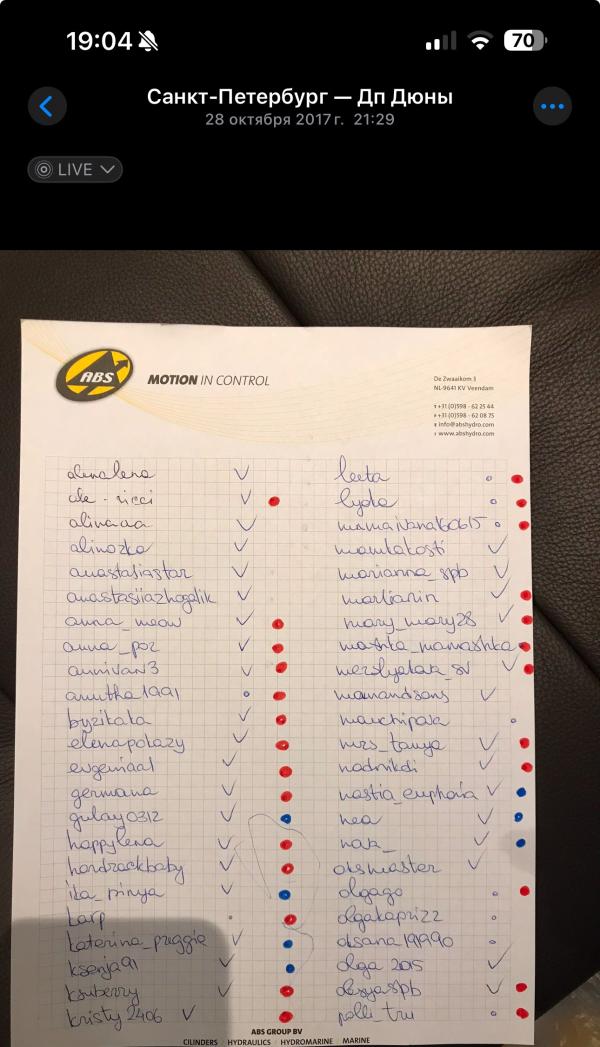 19:04
70
Санкт-Петербург — Дп Дюны
28 октября 2017 г. 21:29
LIVE
ABS
MOTION IN CONTROL
De Zwaaikom 3
NL-9641 KV Veendam
T +31 (0)598 - 62 25 44
F +31 (0)598 - 62 08 75
E info@abshydro.com
I www.abshydro.com
alenalena
ale - ricci
alinaaa
alinozka
anastasiastar
anastasiiazhogalik
anna_meow
anna_por
annivan3
anutka1991
byzikata
elenapotazy
evgeniaal
germana
gulay0312
happylena
hardrockbaby
ika_pinya
karp
katerina_preggie
ksenja91
ksuberry
kristy2406
leeta
lyda
mamaivana160615
mamtakosti
marianna_spb
marljanin
mary_mary28
masha_mamashka
merzlyakak_sv
mamandsons
mauchipara
mrs_tanya
nadinikdi
nastia_euphoria
nea
nak_
oksmaster
olgago
olgakapriz2
oksana191990
olga2015
olesyaspb
polli_tru
ABS GROUP BV
CILINDERS / HYDRAULICS / HYDROMARINE / MARINE